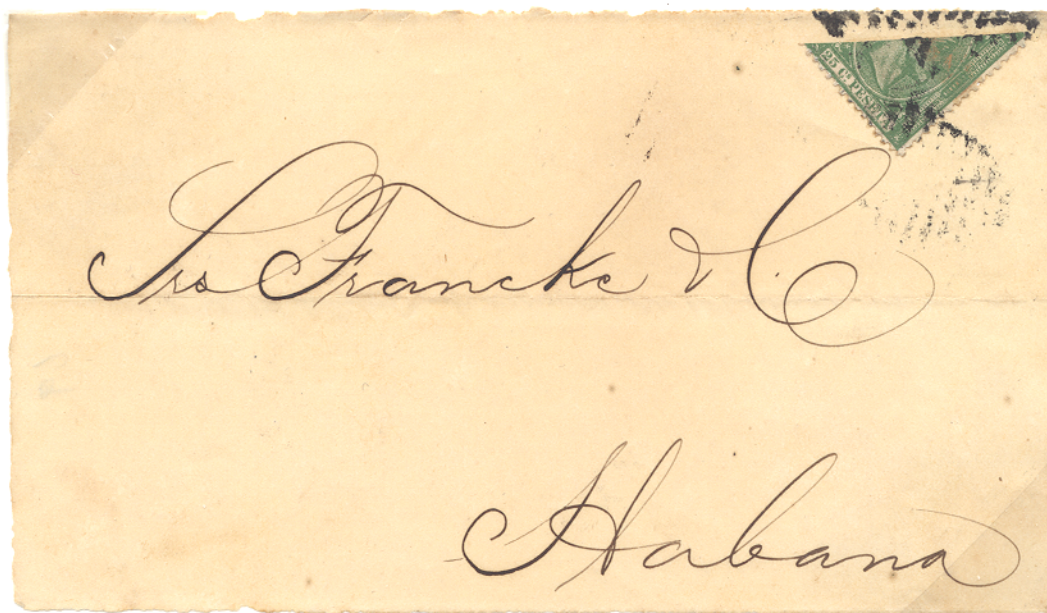 25 Cs PESETA
Srs Francke & C.
Habana